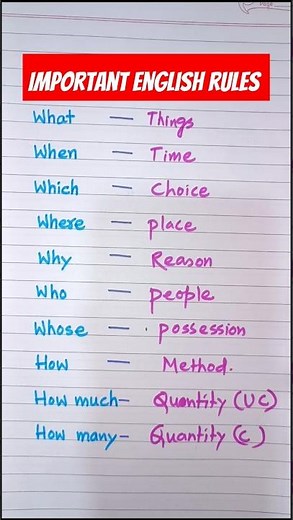 IMPORTANT ENGLISH RULES
What — Things
When — Time
Which — Choice
Where — place
Why — Reason
Who — people
Whose — possession
How — Method.
How much – Quantity (UC)
How many – Quantity (C)